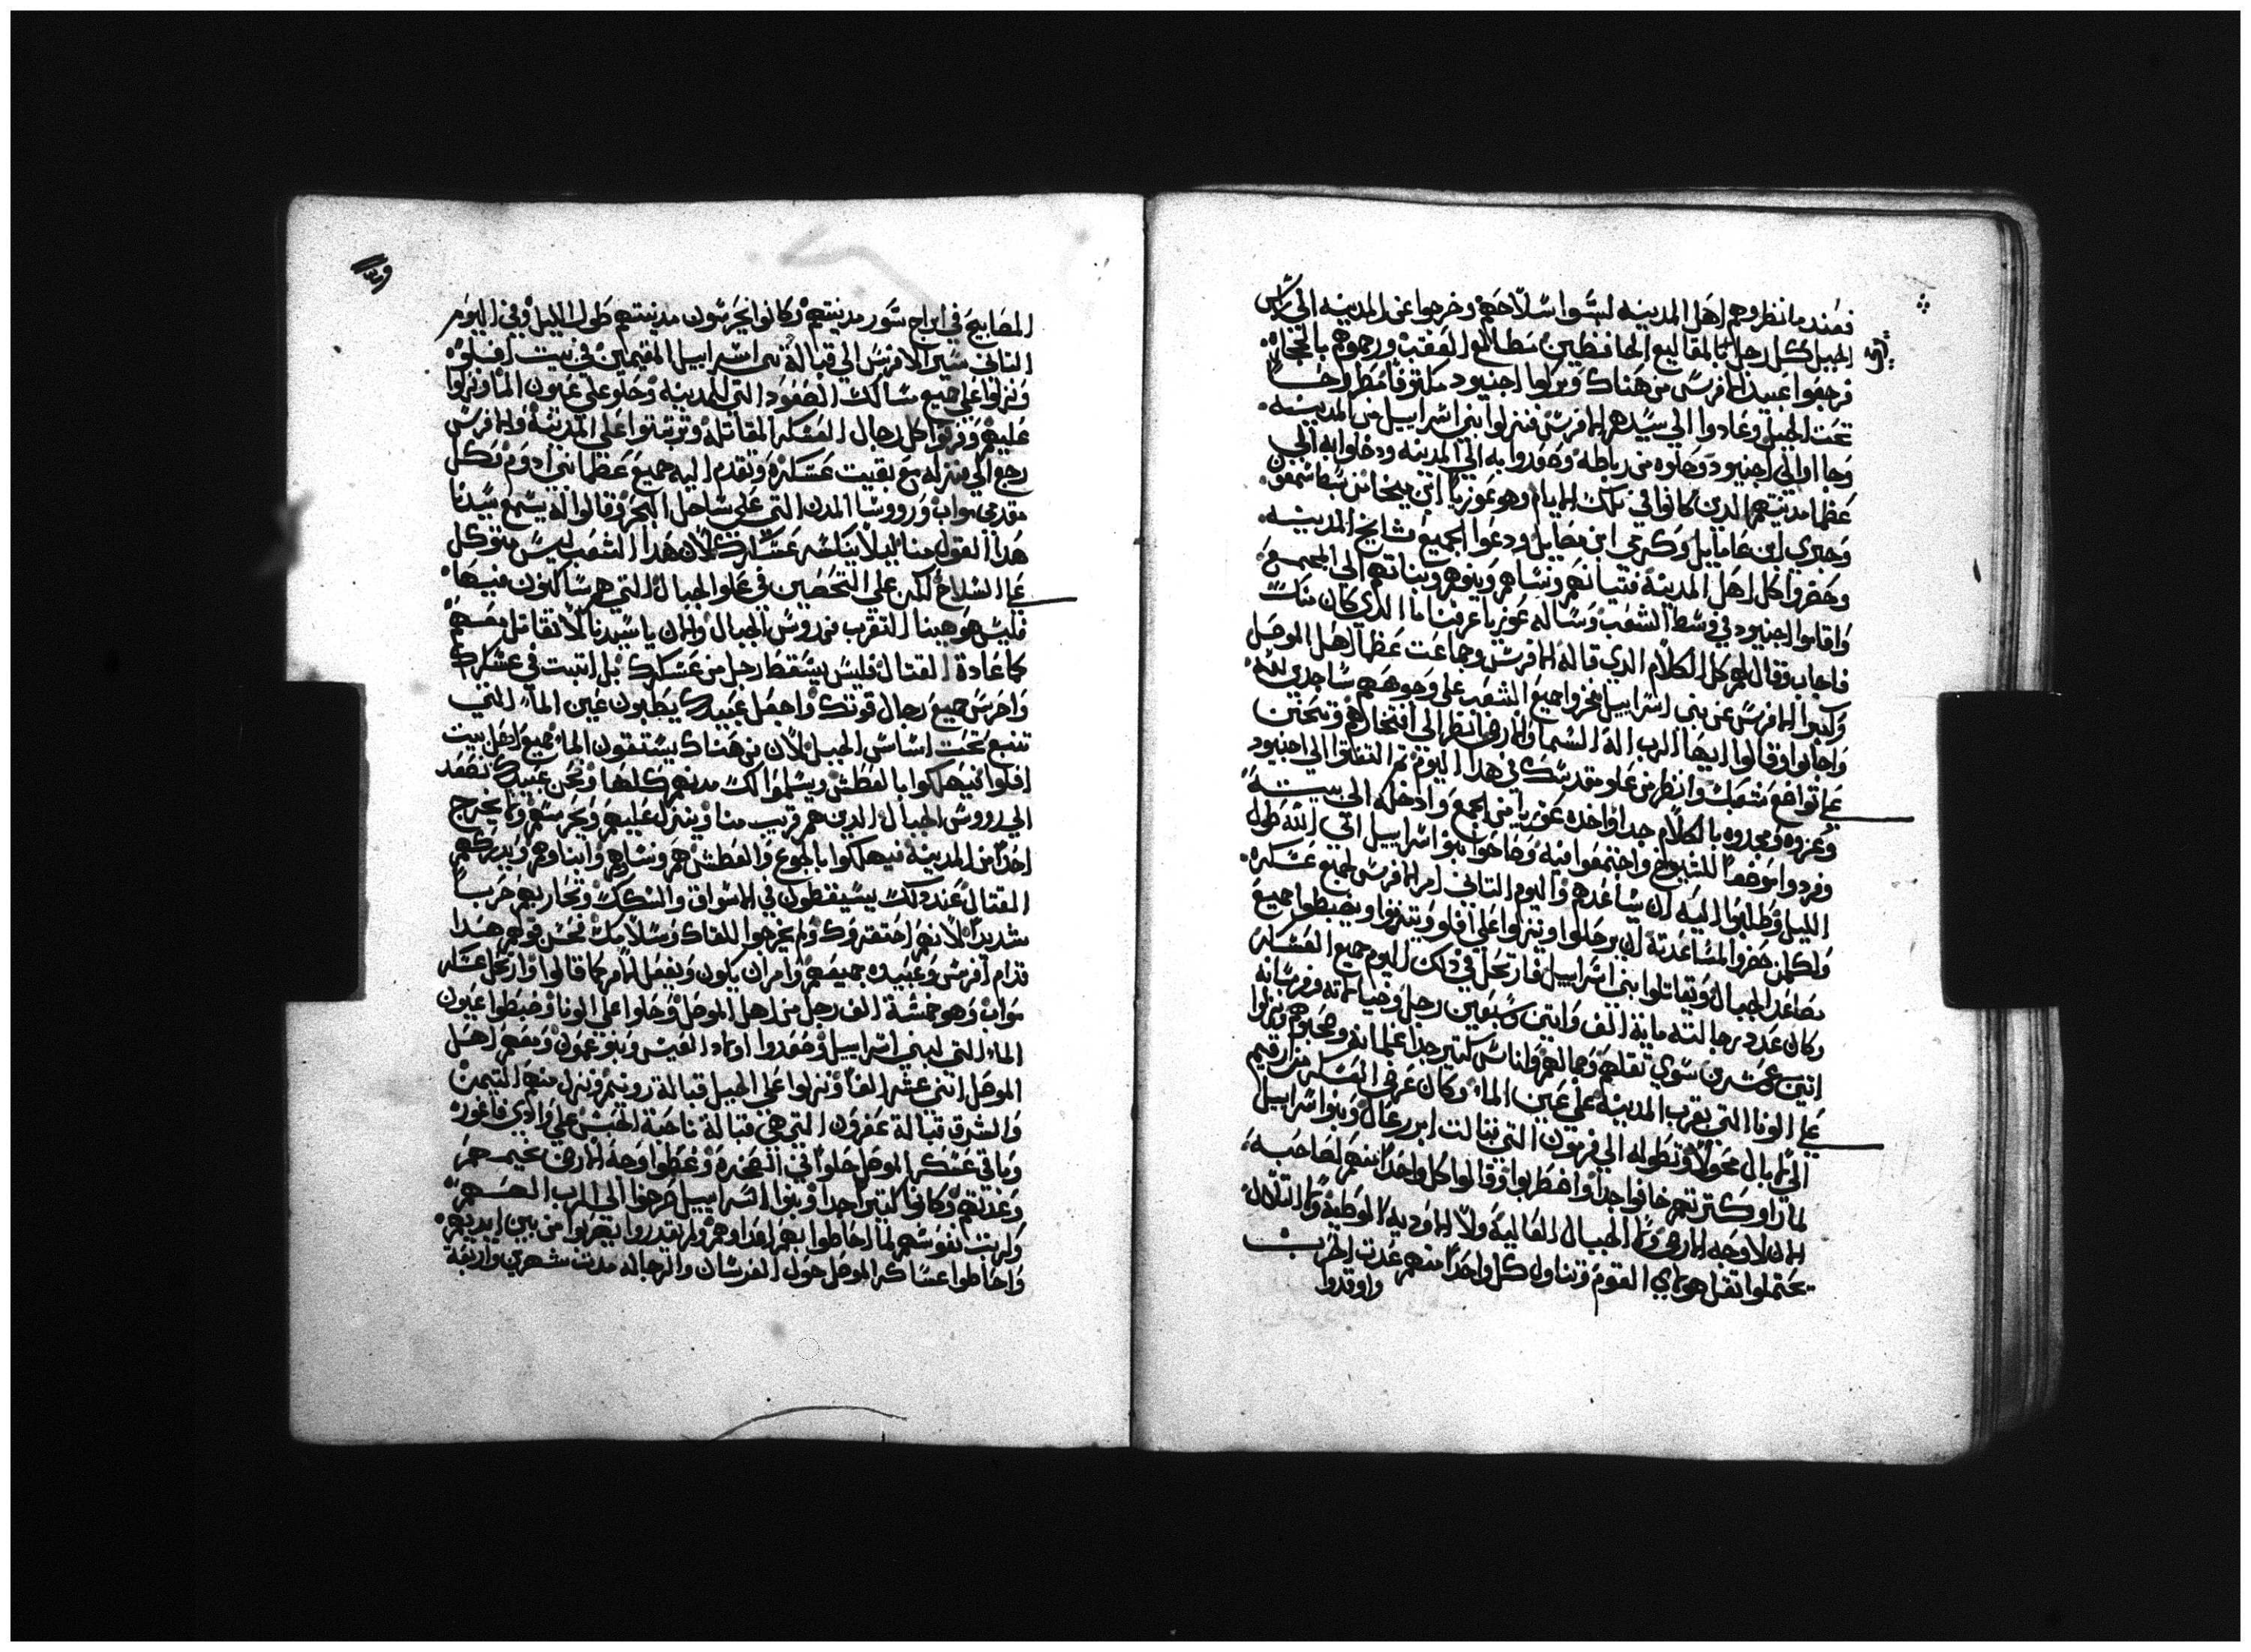 فعند ما نظروهم اهل المدينه لبسوا سلاحهم وخرجوا عن المدينه الي راس
الجبل كل رجل بالمقاليع الحافظين مطالع العقبة ورموهم بالحجاره
فرجعوا عبيد الافرس من هناك وتركوا احنيود مكتوفا مطروحا
تحت الجبل وعادوا الي سيدهم الافرس فنزلوا بني اسراييل من المدينه
وجاا الي احنيود وحلوه من رباطه وصعدوا به الي المدينه ودخلوا به الي
عظما مدينتهم الدين كانوا في تلك الايام وهو عوزيا ابن ميخا من سبط شمعون
وحبري ابن عامايل وكرمي ابن معايل ودعوا لجميع مشايخ المدينه
وحضروا كل اهل المدينة فتيانهم ونساهم وبنوهم وبناتهم الي المجمع
واقاموا احنيود في وسط الشعب وساله عوزيا عرفنا ما الدي كان منك
فاجاب وقال لهم كل الكلام الدي قاله الافرس وجماعت عظما اهل الموصل
وكبر الافرس عن بني اسراييل فخروا جميع الشعب علي وجوههم ساجدي لله
واجابوا وقالوا ايها الرب اله السما والارض انظر الي افتخارهم وتحنن
علي تواضع شعبك وانظر من علو مقدسك في هدا اليوم ثم التفتوا الي احنيود
وعزوه ومجدوه بالكلام جدا واخده عوزيا من الجمع وادخله الي بيته
وفردوا موضعا للشيوخ واجتمعوا فيه وصاحوا بنوا اسراييل الي الله طول
الليل وطلبوا اليه ان يساعدهم واليوم التاني امر الافرس لجميع عسكره
ولكلمن حضر المساعدته ان يرحلوا وينزلوا علي افلو ويضبطوا جميع
مصاعد الجبال ويقاتلوا بني اسراييل فارتحل في دلك اليوم جميع العسكر
وكان عدد رجالته ماية الف وابتين وسبعين رجل وخيالاته وفرسانه
اتنين وعشرين سوي تقلهم وجمالهم واناس كتير جدا غلمانه وصحبهم ونزلوا
علي الونا التي بقرب المدينة علي عين الما وكان عرض العسكر من ارقيم
الي ابال محولا وطوله الي فرمون التي قبالت ابررعال وبنوا اسراييل
لما راو كترتهم خافوا جدا واضطربوا وقالوا كل واحدا منهم لصاحبه
الان لا وجه الارض ولا الجبال العاليه ولا الاوديه الوطيه ولا التلال
يحتملوا تقل هولاي القوم وتناول كل واحدا منهم عدت الحرب
واوقدوا
المصابيح في ابراج سور مدينتهم وكانوا يحرسون مدينتهم طول الليل وفي اليوم
التاني سير الافرس الي قبالة بني اسراييل المقيمين في بيت افلوه
ونزلوا علي جميع مسالك الصعود التي للمدينه وحلو علي عيون الما ونزلوا
عليهم وفرقوا كل رجال العسكر المقاتله وترتبوا علي المدينة والافرس
رجع الي منزله مع بقيت عسكره وتقدم اليه جميع عظما بني ادوم وكل
مقدمي مواب ورووسا المدن التي علي ساحل البحر وقالوا له يسمع سيدنا
هدا القول منا ليلا يناسه عسكرك لان هدا الشعب ليس متوكل
علي السلاح لكن علي التحصين في علو الجبال التي هم ساكنون فيها
فليس هو هينا التقرب من روس الجبال والان يا سيدنا لا تقاتل معهم
كما عادة القتال فليس يسقط رجل من عسكرك بل اتبت في عسكرك
واحرس جميع رجال قوتك واجعل عبيدك يضبطون عين الما التي
تنبع تحت اساس الجبل لان من هناك يستقون الما جميع اهل بيت
افلوا فيهلكوا بالعطش ويسلموا لك مدينهم كلها ونحن عبيدك نصعد
الي رووس الجبال الدين هم قريب منا وينزل عليهم ونحرسهم ولا يخرج
احد من المدينة فيهلكوا بالجوع والعطش هم ونساهم وابناوهم ويدركهم
القتال عند دلك يسقطون في الاسواق والسكك وتحاربهم حربا
شديدا لانهم احتقروك ولم يخرجوا للقاك وسلامك فحسن قولهم هدا
قدام افرس وعبيده جميعهم وامر ان يكون ويفعل لامر كما قالوا وارتحل عسكر
مواب وهو خمسة الف رجل من اهل الموصل وحلوا علي الونا وضبطوا عيون
الما التي لبني اسراييل وصعدوا اولاد العيس وبنو عمون ومعهم اهل
الموصل اتني عشر الفا ونزلوا علي الجبل قبالة رونيم ونزل منهم التيمن
والشرق قبالة عفرون التي هي قبالة ناحية الحبس علي وادي فاغوره
وباقي عسكر الموصل حلوا في الصحره وغطوا وجه الارض بخيمهم
وعدتهم وكانوا كتير جدا وبنوا اسراييل صرخوا الي الرب الههم
وكربت نفوسهم لما احاطوا بهم اعداوهم ولم يقدروا يهربوا من بين ايديهم
واحاطوا عساكر الموصل حول الفرسان والرجاله مدت شهرين واربعة